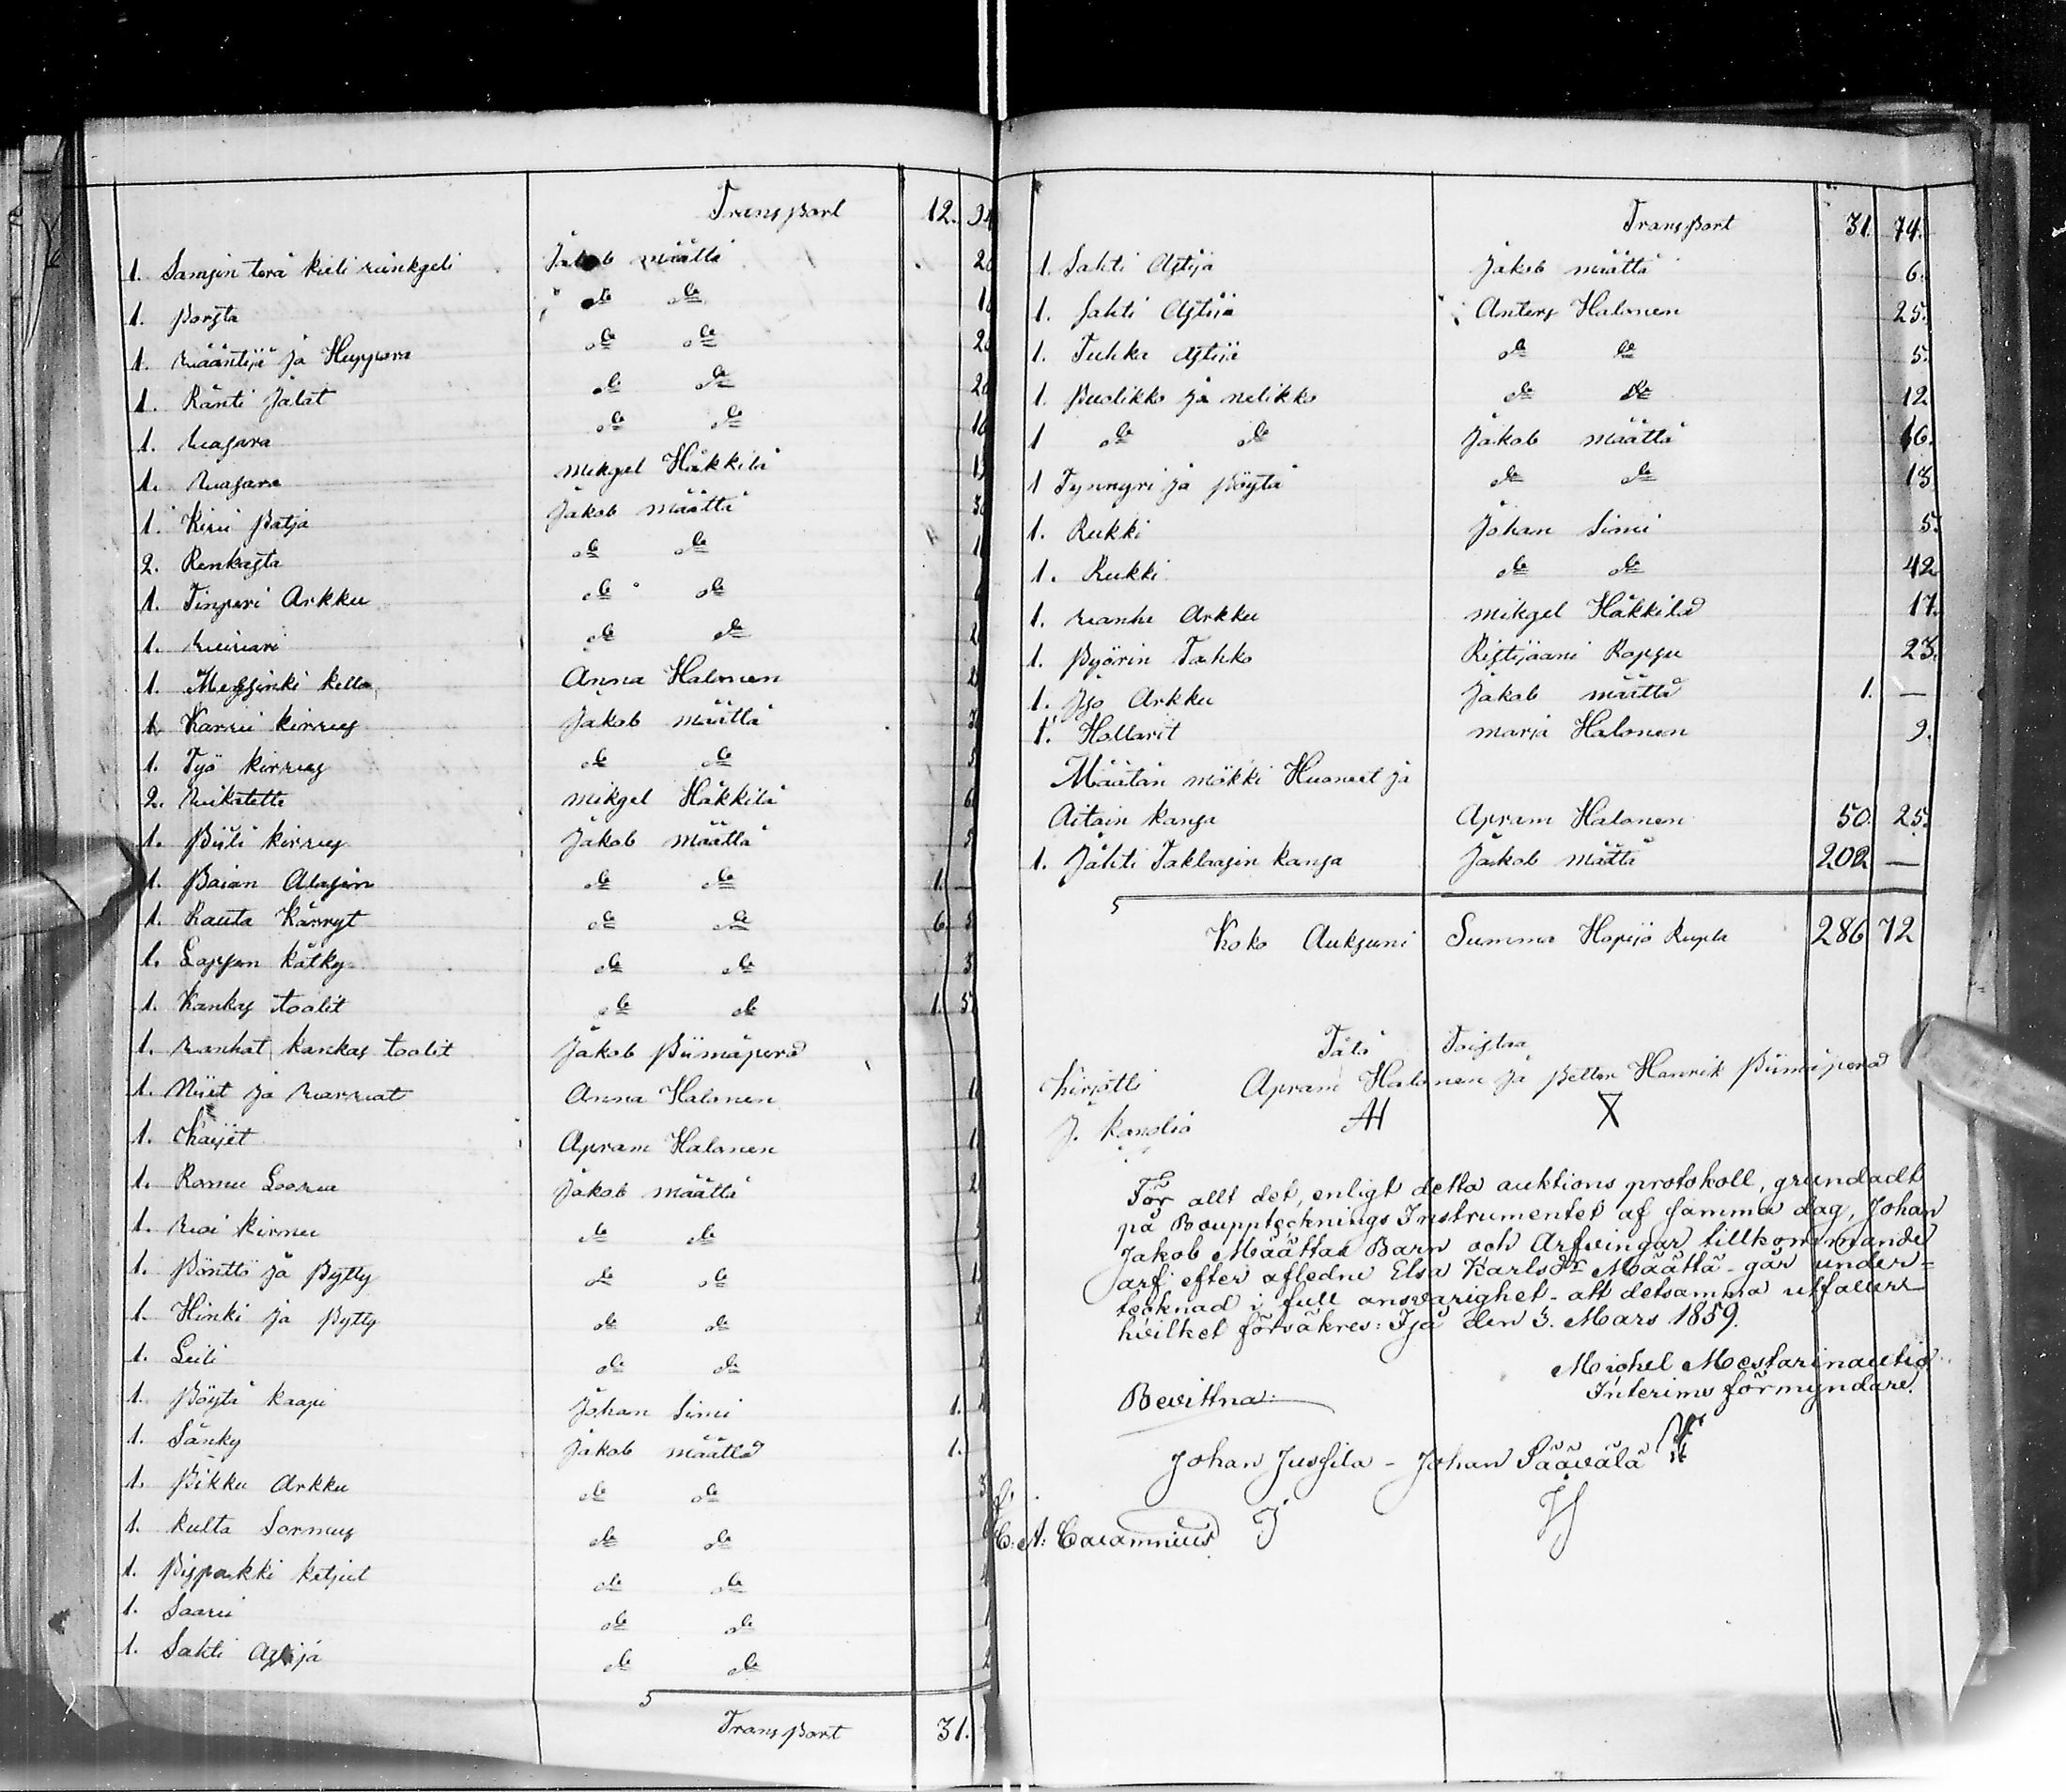 Transport 12.
1. Samsin terä kieli riinkgeli Jakob määttä
1. Porsta do do
1. wääntijä ja Huppara do do
1. Ränti Jalat do do
1. wasara do do
1. wasara mikgel Häkkilä
1. Kivi Patja Jakob määttä
2. Renkasta do do
1. Tinperi Arkku do do
1. wiiwari do do
1. Messinki kello Anna Halonen
1. Karwi kirwes Jakob määttä
1. Työ kirwes do do
2. wikatetta mikgel Häkkilä
1. Piili kirwes Jakob määttä
1. Paian Alasin do do 1. —
1. Rauta Kärryt do do 6.
1. Lappen kätky do do
1. Kankas toolit do do 1. 5
1. wanhat kankas toolit Jakob Piimäperä
1. Niiet ja warwat Anna Halonen
1. Kaijet Apram Halonen
1. Romu Loowa Jakob määttä
1. woi kirnu do do
1. Pönttö ja Pytty do do
1. Hinki ja Pytty do do
1. Leili do do
1. Pöytä kaapi Johan Simi 1.
1. Sänky Jakob määttä 1.
1. Pikku Arkku do do
1. kulta Sormus do do
1. Pispakki ketjut do do
1. Saawi do do
1. Sahti Astija do do
Transport 31.
Transport 31. 74.
1. Sahti Astija Jakob määttä 6.
1. Sahti Astija Anters Halonen 25.
1. Tuhka Astija do do 5.
1. Puolikko ja nelikko do do 12
1 do do Jakob määttä 16.
1 Tynnyri ja Pöytä do do 13
1. Rukki Johan Simi 5.
1. Rukki do do 42
1. wanha Arkku mikgel Häkkilä 17.
1. Pyörin Tahko Ristijaani Rapsu 23.
1. Iso Arkku Jakob määttä 1. —
1. Hollarit marja Halonen 9.
Määtän mökki Huoneet ja
Aitain kansa Apram Halonen 50. 25.
1. Jähti Taklasin kansa Jakob määttä 202 —
Koko Auksuni Summa Hopijo Rupla 286 72
Tätä Toistaa
kirjotti Apram Halonen ja Petter Hanrik Piimäperä
J. Kanoliä AH X
För allt det, enligt detta auktions protokoll, grundadt
på Bouppteckningsinstrumentet af samma dag, Johan
Jakob Määttas Barn och Arfvingar tillkommande
arf efter afledne Elsa Karlsdr Määttä går under-
tecknad i full ansvarighet att detsamma utfaller
hvilket försäkres: Ijå den 3. Mars 1859.
Michel Mestarinautio
Interims förmyndare.
Bevittna:
Johan Jussila - Johan Säävälä
C: A: Cajamnius J